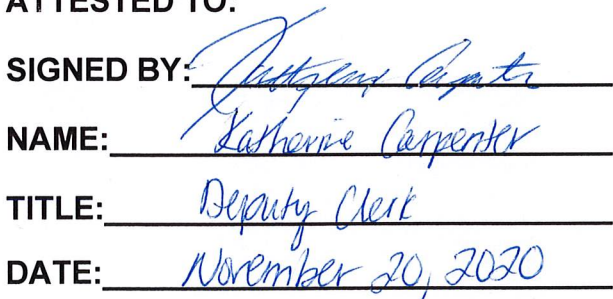 ATTESTED TO:
SIGNED BY: Katherine Carpenter
NAME: Katherine Carpenter
TITLE: Deputy Clerk
DATE: November 20, 2020